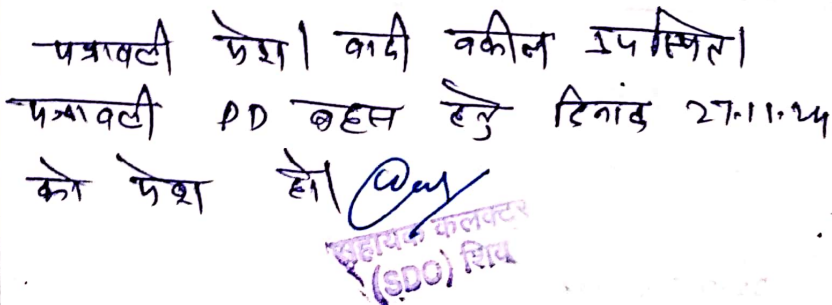 पत्रावली पेश। वादी वकील उपस्थित।
पत्रावली PD बहस हेतु दिनांक 27.11.24
को पेश हो।
सहायक कलक्टर
(SDO) शिव